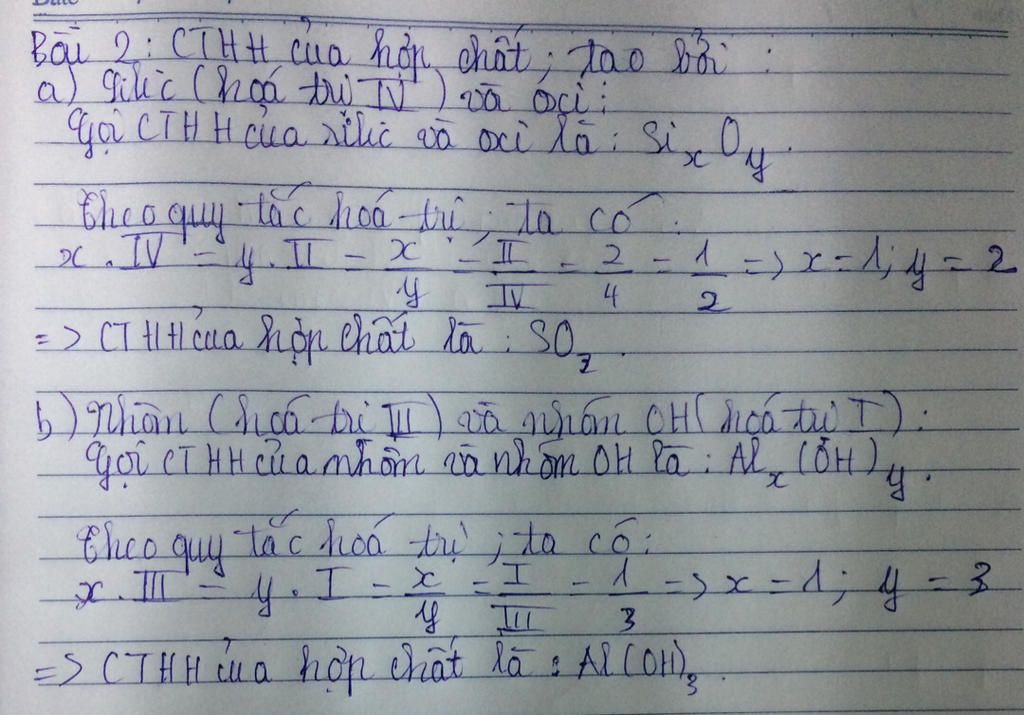 Bài 2: CTHH của hợp chất; tạo bởi:
a) Silic (hoá trị IV) và oxi:
Gọi CTHH của silic và oxi là: SixOy.
Theo quy tắc hoá trị; ta có:
x. IV = y. II = x/y = II/IV = 2/4 = 1/2 => x = 1; y = 2
=> CTHH của hợp chất là: SO2.
b) Nhôm (hoá trị III) và nhóm OH (hoá trị I):
Gọi CTHH của nhôm và nhóm OH là: Alx(OH)y.
Theo quy tắc hoá trị; ta có:
x. III = y. I = x/y = I/III = 1/3 => x = 1; y = 3
=> CTHH của hợp chất là: Al(OH)3.